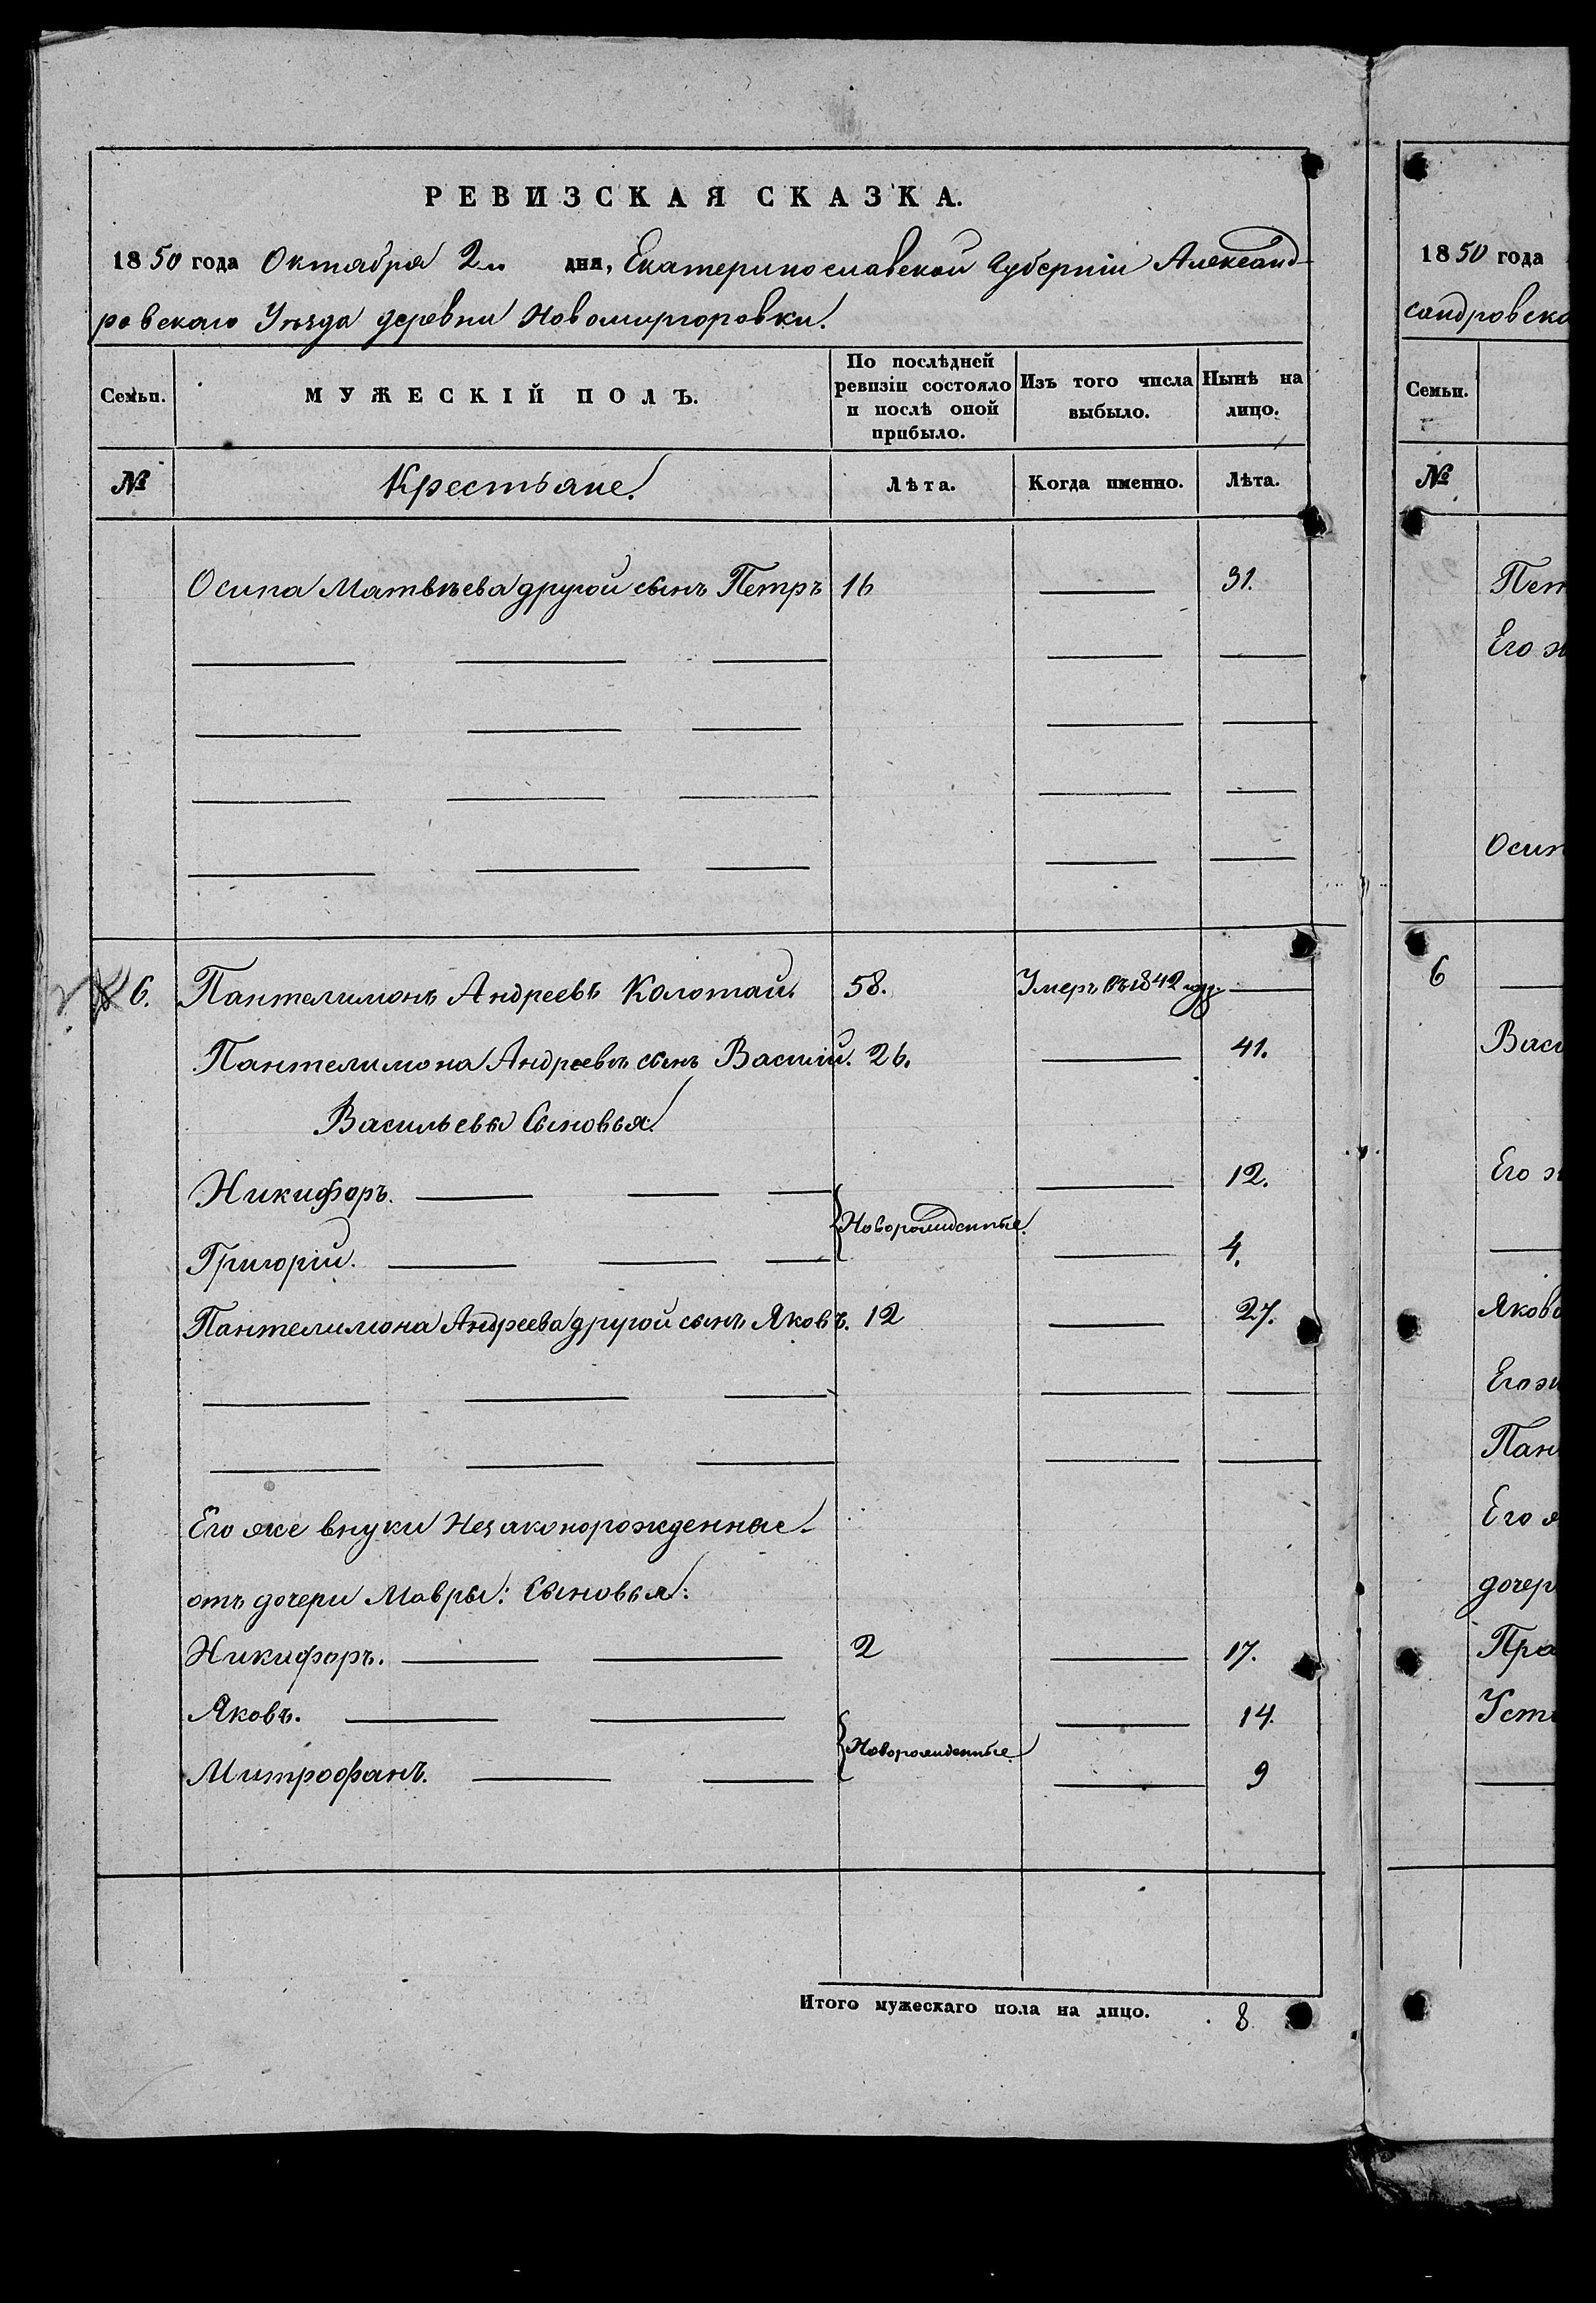 РЕВИЗСКАЯ СКАЗКА.
1850 года Октября 2го дня, Екатеринославской Губерніи Александ-
ровскаго Уѣзда деревни Новомиргоровки.
Семьи.
МУЖЕСКІЙ ПОЛЪ.
По послѣдней ревизіи состояло и послѣ оной прибыло.
Изъ того числа выбыло.
Нынѣ на лицо.
№ Крестьяне. Лѣта. Когда именно. Лѣта.
Осипа Матвѣева другой сынъ Петръ 16 31.
6. Пантелимонъ Андреевъ Колотай. 58. Умеръ въ 1842 году.
Пантелимона Андреева сынъ Василій. 26. 41.
Васильевы Сыновья
Никифоръ. 12.
Новорожденные.
Григорій. 4.
Пантелимона Андреева другой сынъ Яковъ. 12 27.
Его же внуки Незаконорожденные
отъ дочери Мавры: Сыновья:
Никифоръ. 2 17.
Яковъ. 14.
Новорожденные.
Митрофанъ. 9
Итого мужескаго пола на лицо. 8
1850 года
сандровска
Семьи.
№
Пет
Его ж
Осип
6
Васи
Его ж
Якова
Его ж
Пан
Его ж
дочер
Пра
Усти